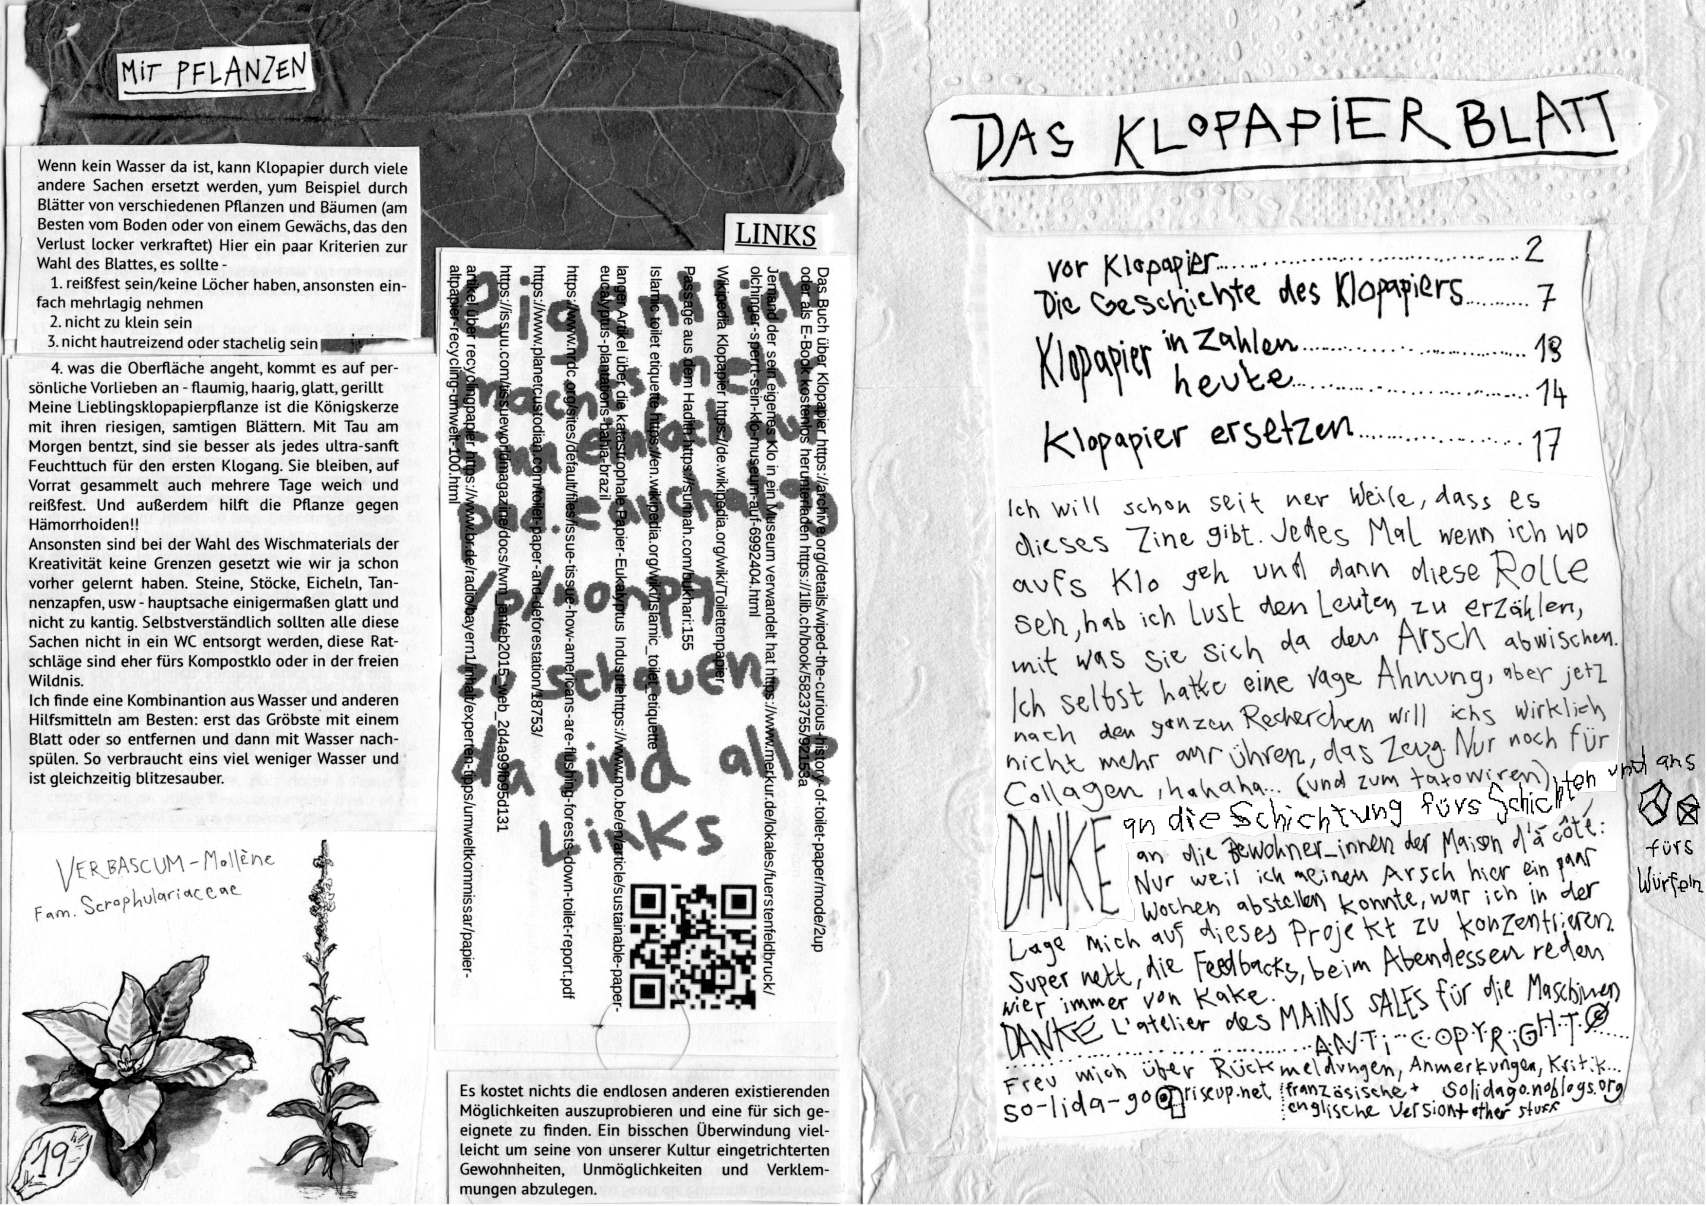 MIT PFLANZEN
Wenn kein Wasser da ist, kann Klopapier durch viele
andere Sachen ersetzt werden, yum Beispiel durch
Blätter von verschiedenen Pflanzen und Bäumen (am
Besten vom Boden oder von einem Gewächs, das den
Verlust locker verkraftet) Hier ein paar Kriterien zur
Wahl des Blattes, es sollte -
1. reißfest sein/keine Löcher haben, ansonsten ein-
fach mehrlagig nehmen
2. nicht zu klein sein
3. nicht hautreizend oder stachelig sein
4. was die Oberfläche angeht, kommt es auf per-
sönliche Vorlieben an - flaumig, haarig, glatt, gerillt
Meine Lieblingsklopapierpflanze ist die Königskerze
mit ihren riesigen, samtigen Blättern. Mit Tau am
Morgen bentzt, sind sie besser als jedes ultra-sanft
Feuchttuch für den ersten Klogang. Sie bleiben, auf
Vorrat gesammelt auch mehrere Tage weich und
reißfest. Und außerdem hilft die Pflanze gegen
Hämorrhoiden!!
Ansonsten sind bei der Wahl des Wischmaterials der
Kreativität keine Grenzen gesetzt wie wir ja schon
vorher gelernt haben. Steine, Stöcke, Eicheln, Tan-
nenzapfen, usw - hauptsache einigermaßen glatt und
nicht zu kantig. Selbstverständlich sollten alle diese
Sachen nicht in ein WC entsorgt werden, diese Rat-
schläge sind eher fürs Kompostklo oder in der freien
Wildnis.
Ich finde eine Kombinantion aus Wasser und anderen
Hilfsmitteln am Besten: erst das Gröbste mit einem
Blatt oder so entfernen und dann mit Wasser nach-
spülen. So verbraucht eins viel weniger Wasser und
ist gleichzeitig blitzesauber.
VERBASCUM - Mollène
Fam. Scrophulariaceae
19
LINKS
Das Buch über Klopapier https://archive.org/details/wiped-the-curious-history-of-toilet-paper/mode/2up
oder als E-Book kostenlos herunterladen https://1lib.ch/book/5823755/92153a
Jemand der sein eigenes Klo in ein Museum verwandelt hat https://www.merkur.de/lokales/fuerstenfeldbruck/
olchinger-sperrt-sein-klo-museum-auf-6992404.html
Wikipedia Klopapier https://de.wikipedia.org/wiki/Toilettenpapier
Passage aus dem Hadith https://sunnah.com/bukhari:155
Islamic toilet etiquette https://en.wikipedia.org/wiki/Islamic_toilet_etiquette
langer Artikel über die katastrophale Papier-Eukalyptus Industrie https://www.mo.be/en/article/sustainable-paper-
eucalyptus-plantations-bahia-brazil
https://www.nrdc.org/sites/default/files/issue-tissue-how-americans-are-flushing-forests-down-toilet-report.pdf
https://www.planetcustodian.com/toilet-paper-and-deforestation/18753/
https://issuu.com/tissueworldmagazine/docs/twm_janfeb2015_web_2d4a99fb95d131
artikel über recyclingpapier https://www.br.de/radio/bayern1/inhalt/experten-tipps/umweltkommissar/papier-
altpapier-recycling-umwelt-100.html
machts mehr
Sinn einfach auf
/p/klionpq
zu schauen
da sind alle
Links
Es kostet nichts die endlosen anderen existierenden
Möglichkeiten auszuprobieren und eine für sich ge-
eignete zu finden. Ein bisschen Überwindung viel-
leicht um seine von unserer Kultur eingetrichterten
Gewohnheiten, Unmöglichkeiten und Verklem-
mungen abzulegen.
DAS KLOPAPIER BLATT
vor Klopapier 2
Die Geschichte des Klopapiers 7
Klopapier in Zahlen 13
heute 14
Klopapier ersetzen 17
Ich will schon seit ner Weile, dass es
dieses Zine gibt. Jedes Mal wenn ich wo
aufs Klo geh und dann diese Rolle
seh, hab ich Lust den Leuten zu erzählen,
mit was sie sich da den Arsch abwischen.
Ich selbst hatte eine vage Ahnung, aber jetz
nach den ganzen Recherchen will ichs wirklich
nicht mehr anrühren, das Zeug. Nur noch für
Collagen, hahaha... (und zum tätowiren)
DANKE an die Schichtung fürs Schichten und ans
fürs
Würfeln
an die Bewohner_innen der Maison d'à côté:
Nur weil ich meinen Arsch hier ein paar
Wochen abstellen konnte, war ich in der
Lage mich auf dieses Projekt zu konzentrieren.
Super nett, die Feedbacks, beim Abendessen reden
wier immer von Kake.
DANKE L'atelier des MAINS SALES für die Maschinen
ANTI-COPYRIGHT
Freu mich über Rückmeldungen, Anmerkungen, Kritik...
so-lida-go@riseup.net französische + solidago.noblogs.org
englische Version + other stuff